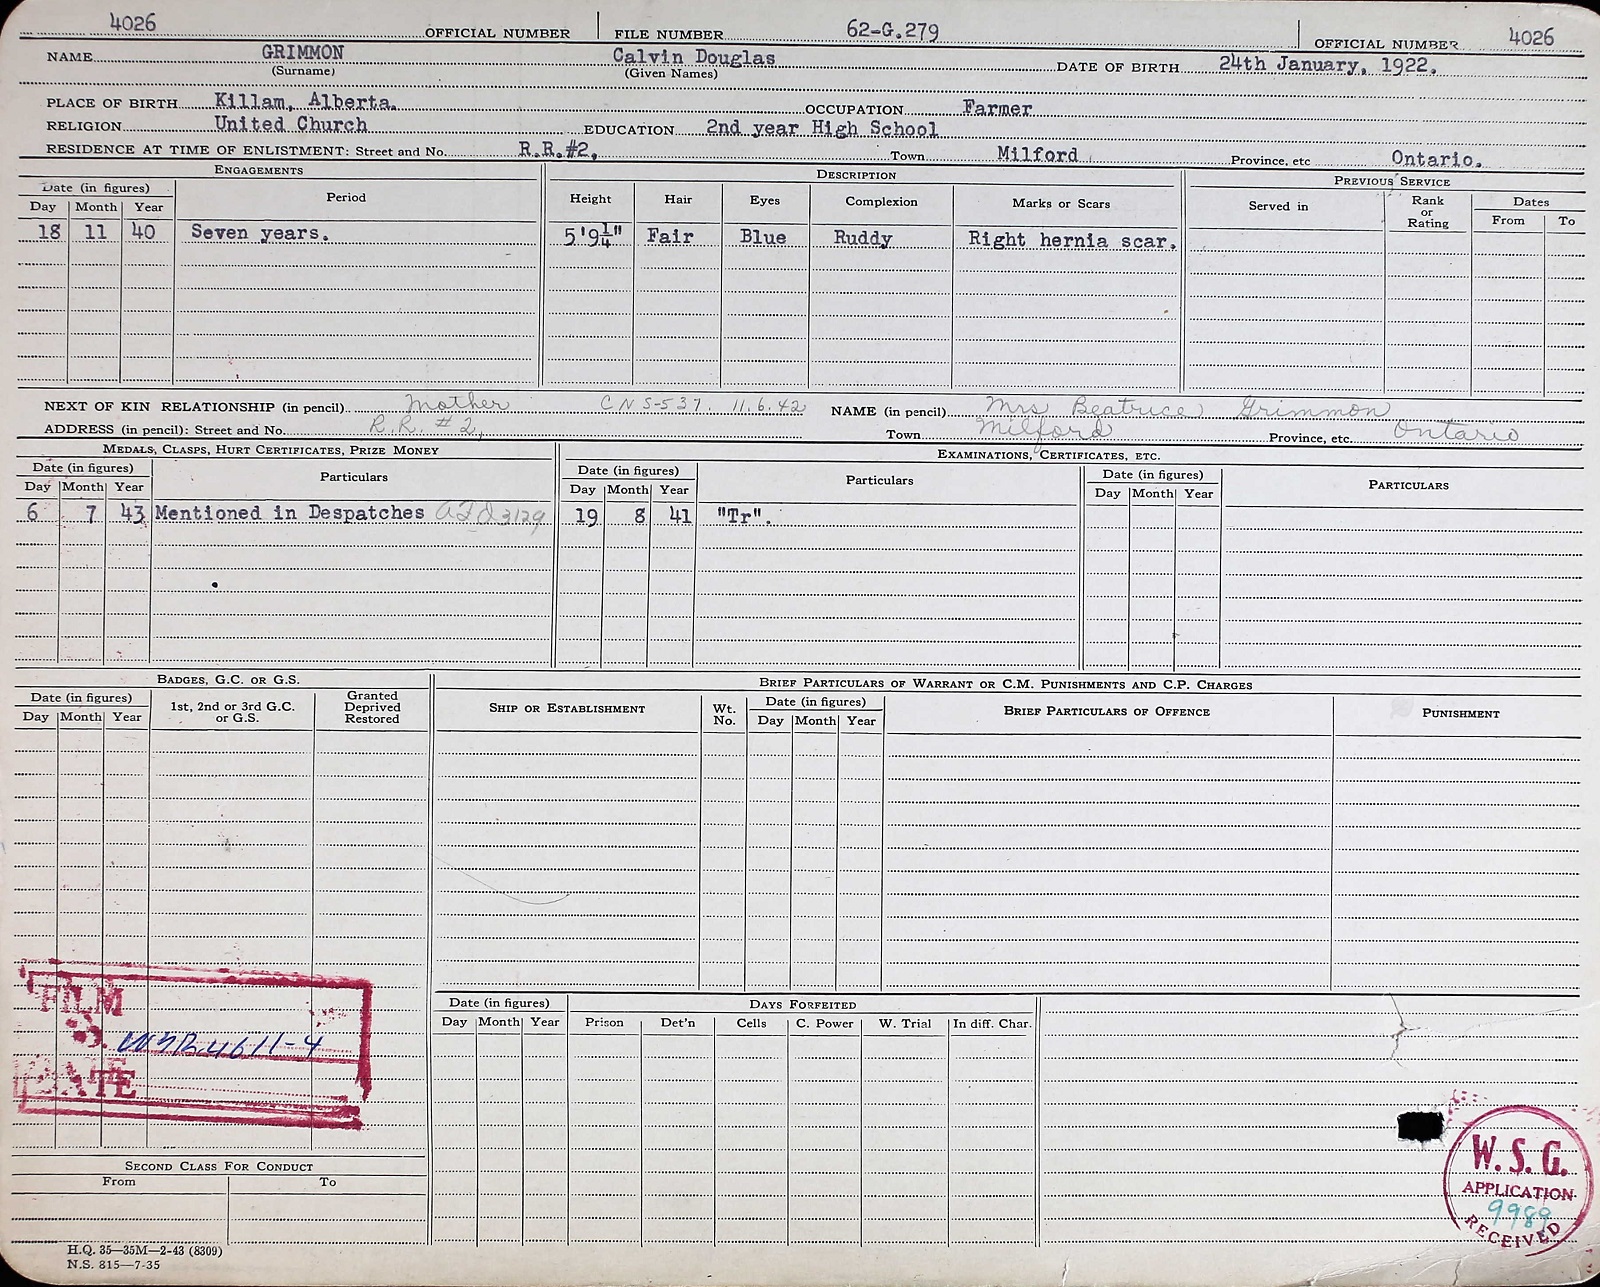 4026 OFFICIAL NUMBER FILE NUMBER 62-G.279 OFFICIAL NUMBER 4026
NAME GRIMMON Calvin Douglas DATE OF BIRTH 24th January, 1922.
(Surname) (Given Names)
PLACE OF BIRTH Killam, Alberta. OCCUPATION Farmer
RELIGION United Church EDUCATION 2nd year High School
RESIDENCE AT TIME OF ENLISTMENT: Street and No. R.R.#2, Town Milford Province, etc Ontario.
ENGAGEMENTS DESCRIPTION PREVIOUS SERVICE
Date (in figures) Period Height Hair Eyes Complexion Marks or Scars Served in Rank or Rating Dates
Day Month Year From To
18 11 40 Seven years. 5'9¼" Fair Blue Ruddy Right hernia scar.
NEXT OF KIN RELATIONSHIP (in pencil) Mother CNS-537. 11.6.42 NAME (in pencil) Mrs Beatrice Grimmon
ADDRESS (in pencil): Street and No. R.R. #2, Town Milford Province, etc. Ontario
MEDALS, CLASPS, HURT CERTIFICATES, PRIZE MONEY EXAMINATIONS, CERTIFICATES, ETC.
Date (in figures) Particulars Date (in figures) Particulars Date (in figures) PARTICULARS
Day Month Year Day Month Year Day Month Year
6 7 43 Mentioned in Despatches 3129 19 8 41 "Tr".
BADGES, G.C. OR G.S. BRIEF PARTICULARS OF WARRANT OR C.M. PUNISHMENTS AND C.P. CHARGES
Date (in figures) 1st, 2nd or 3rd G.C. or G.S. Granted Deprived Restored SHIP OR ESTABLISHMENT Wt. No. Date (in figures) BRIEF PARTICULARS OF OFFENCE PUNISHMENT
Day Month Year Day Month Year
FILM
WSR4611-4
DATE
Date (in figures) DAYS FORFEITED
Day Month Year Prison Det'n Cells C. Power W. Trial In diff. Char.
SECOND CLASS FOR CONDUCT
From To
W.S.G.
APPLICATION
9989
RECEIVED
H.Q. 35—35M—2-43 (8309)
N.S. 815—7-35